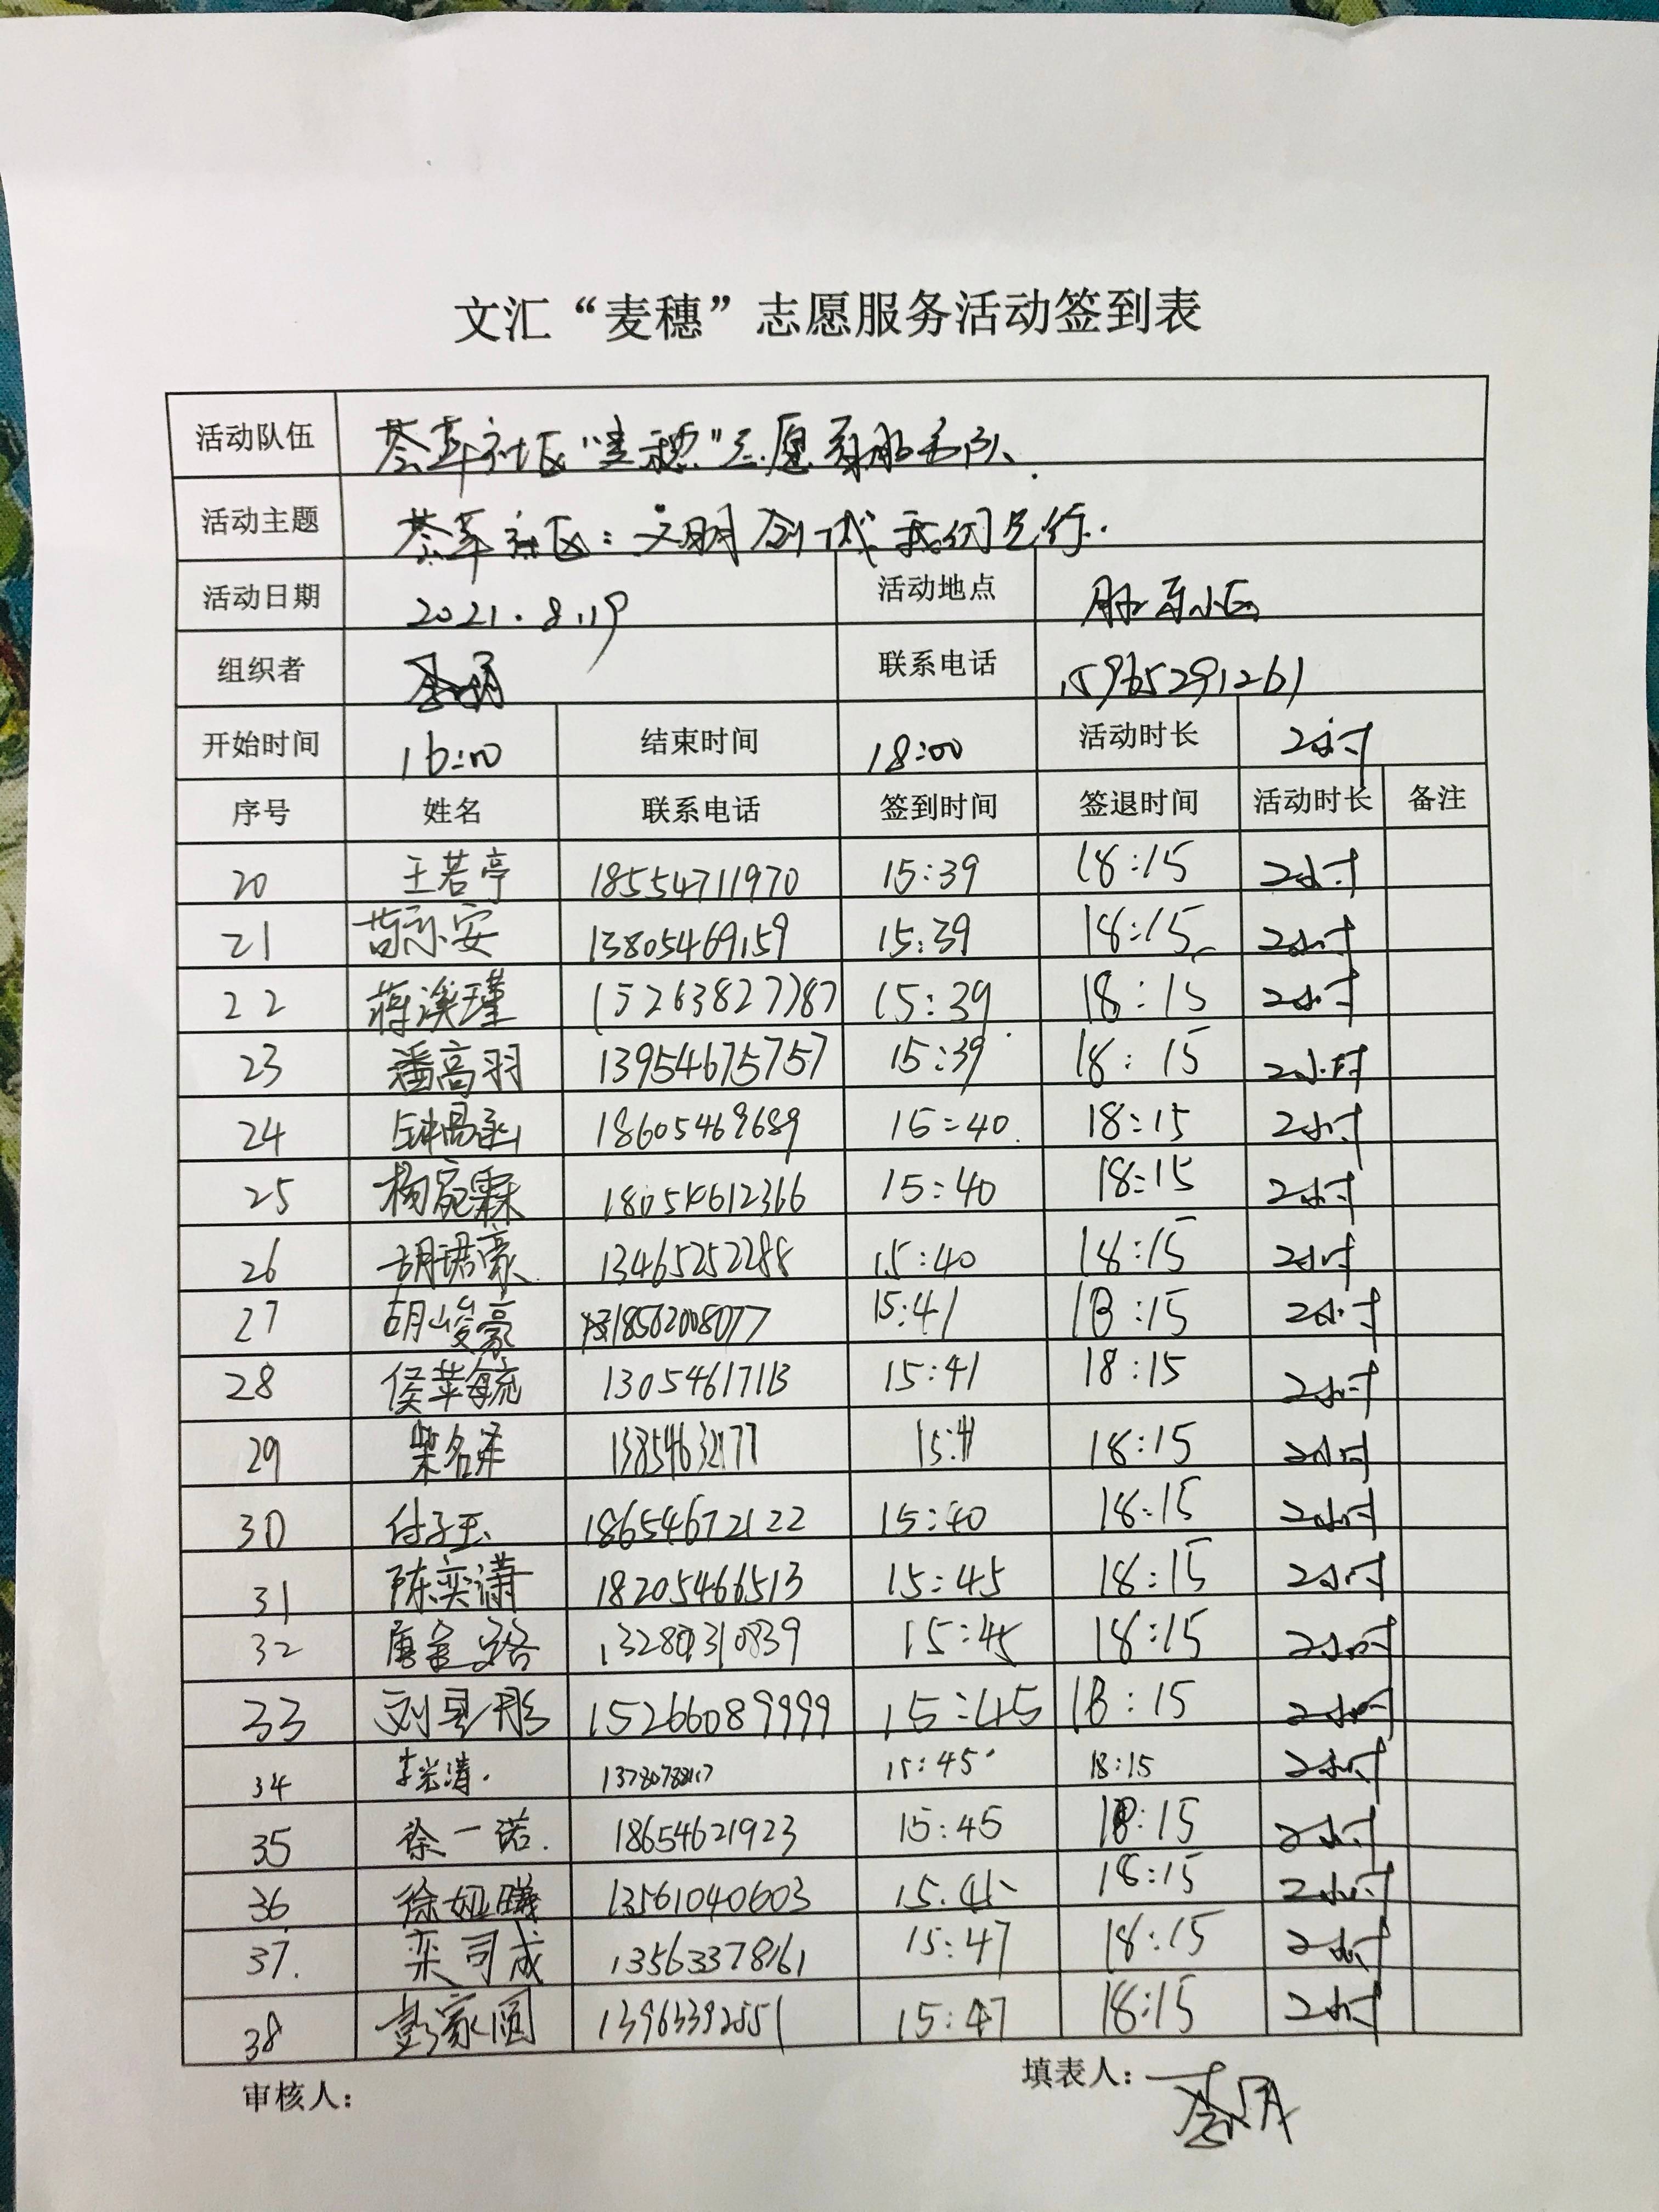 文汇“麦穗”志愿服务活动签到表
活动队伍 荟萃社区“麦穗”志愿服务队
活动主题 荟萃社区：文明创城 我们先行.
活动日期 2021.8.19 活动地点 胜东小区
组织者 联系电话 15965291261
开始时间 16:00 结束时间 18:00 活动时长 2小时
序号 姓名 联系电话 签到时间 签退时间 活动时长 备注
20 王若亭 18554711970 15:39 18:15 2小时
21 苗永安 13805469159 15:39 18:15 2小时
22 蒋溪瑾 15263827787 15:39 18:15 2小时
23 潘高羽 13954675757 15:39 18:15 2小时
24 18605469689 15:40 18:15 2小时
25 杨宛霖 18054612366 15:40 18:15 2小时
26 胡珺豪 13465252288 15:40 18:15 2小时
27 胡峻豪 18562008077 15:41 18:15 2小时
28 侯苹毓 13054617113 15:41 18:15 2小时
29 柴名泽 15:41 18:15 2小时
30 付子玉 18654672122 15:40 18:15 2小时
31 陈奕潇 18205466513 15:45 18:15 2小时
32 15:45 18:15 2小时
33 15266089999 15:45 18:15 2小时
34 15:45 18:15 2小时
35 徐一诺. 18654621923 15:45 18:15 2小时
36 徐娅曦 13561040603 15:45 18:15 2小时
37. 栾司成 13563378161 15:47 18:15 2小时
38 彭家涵 13963392551 15:47 18:15 2小时
审核人： 填表人：